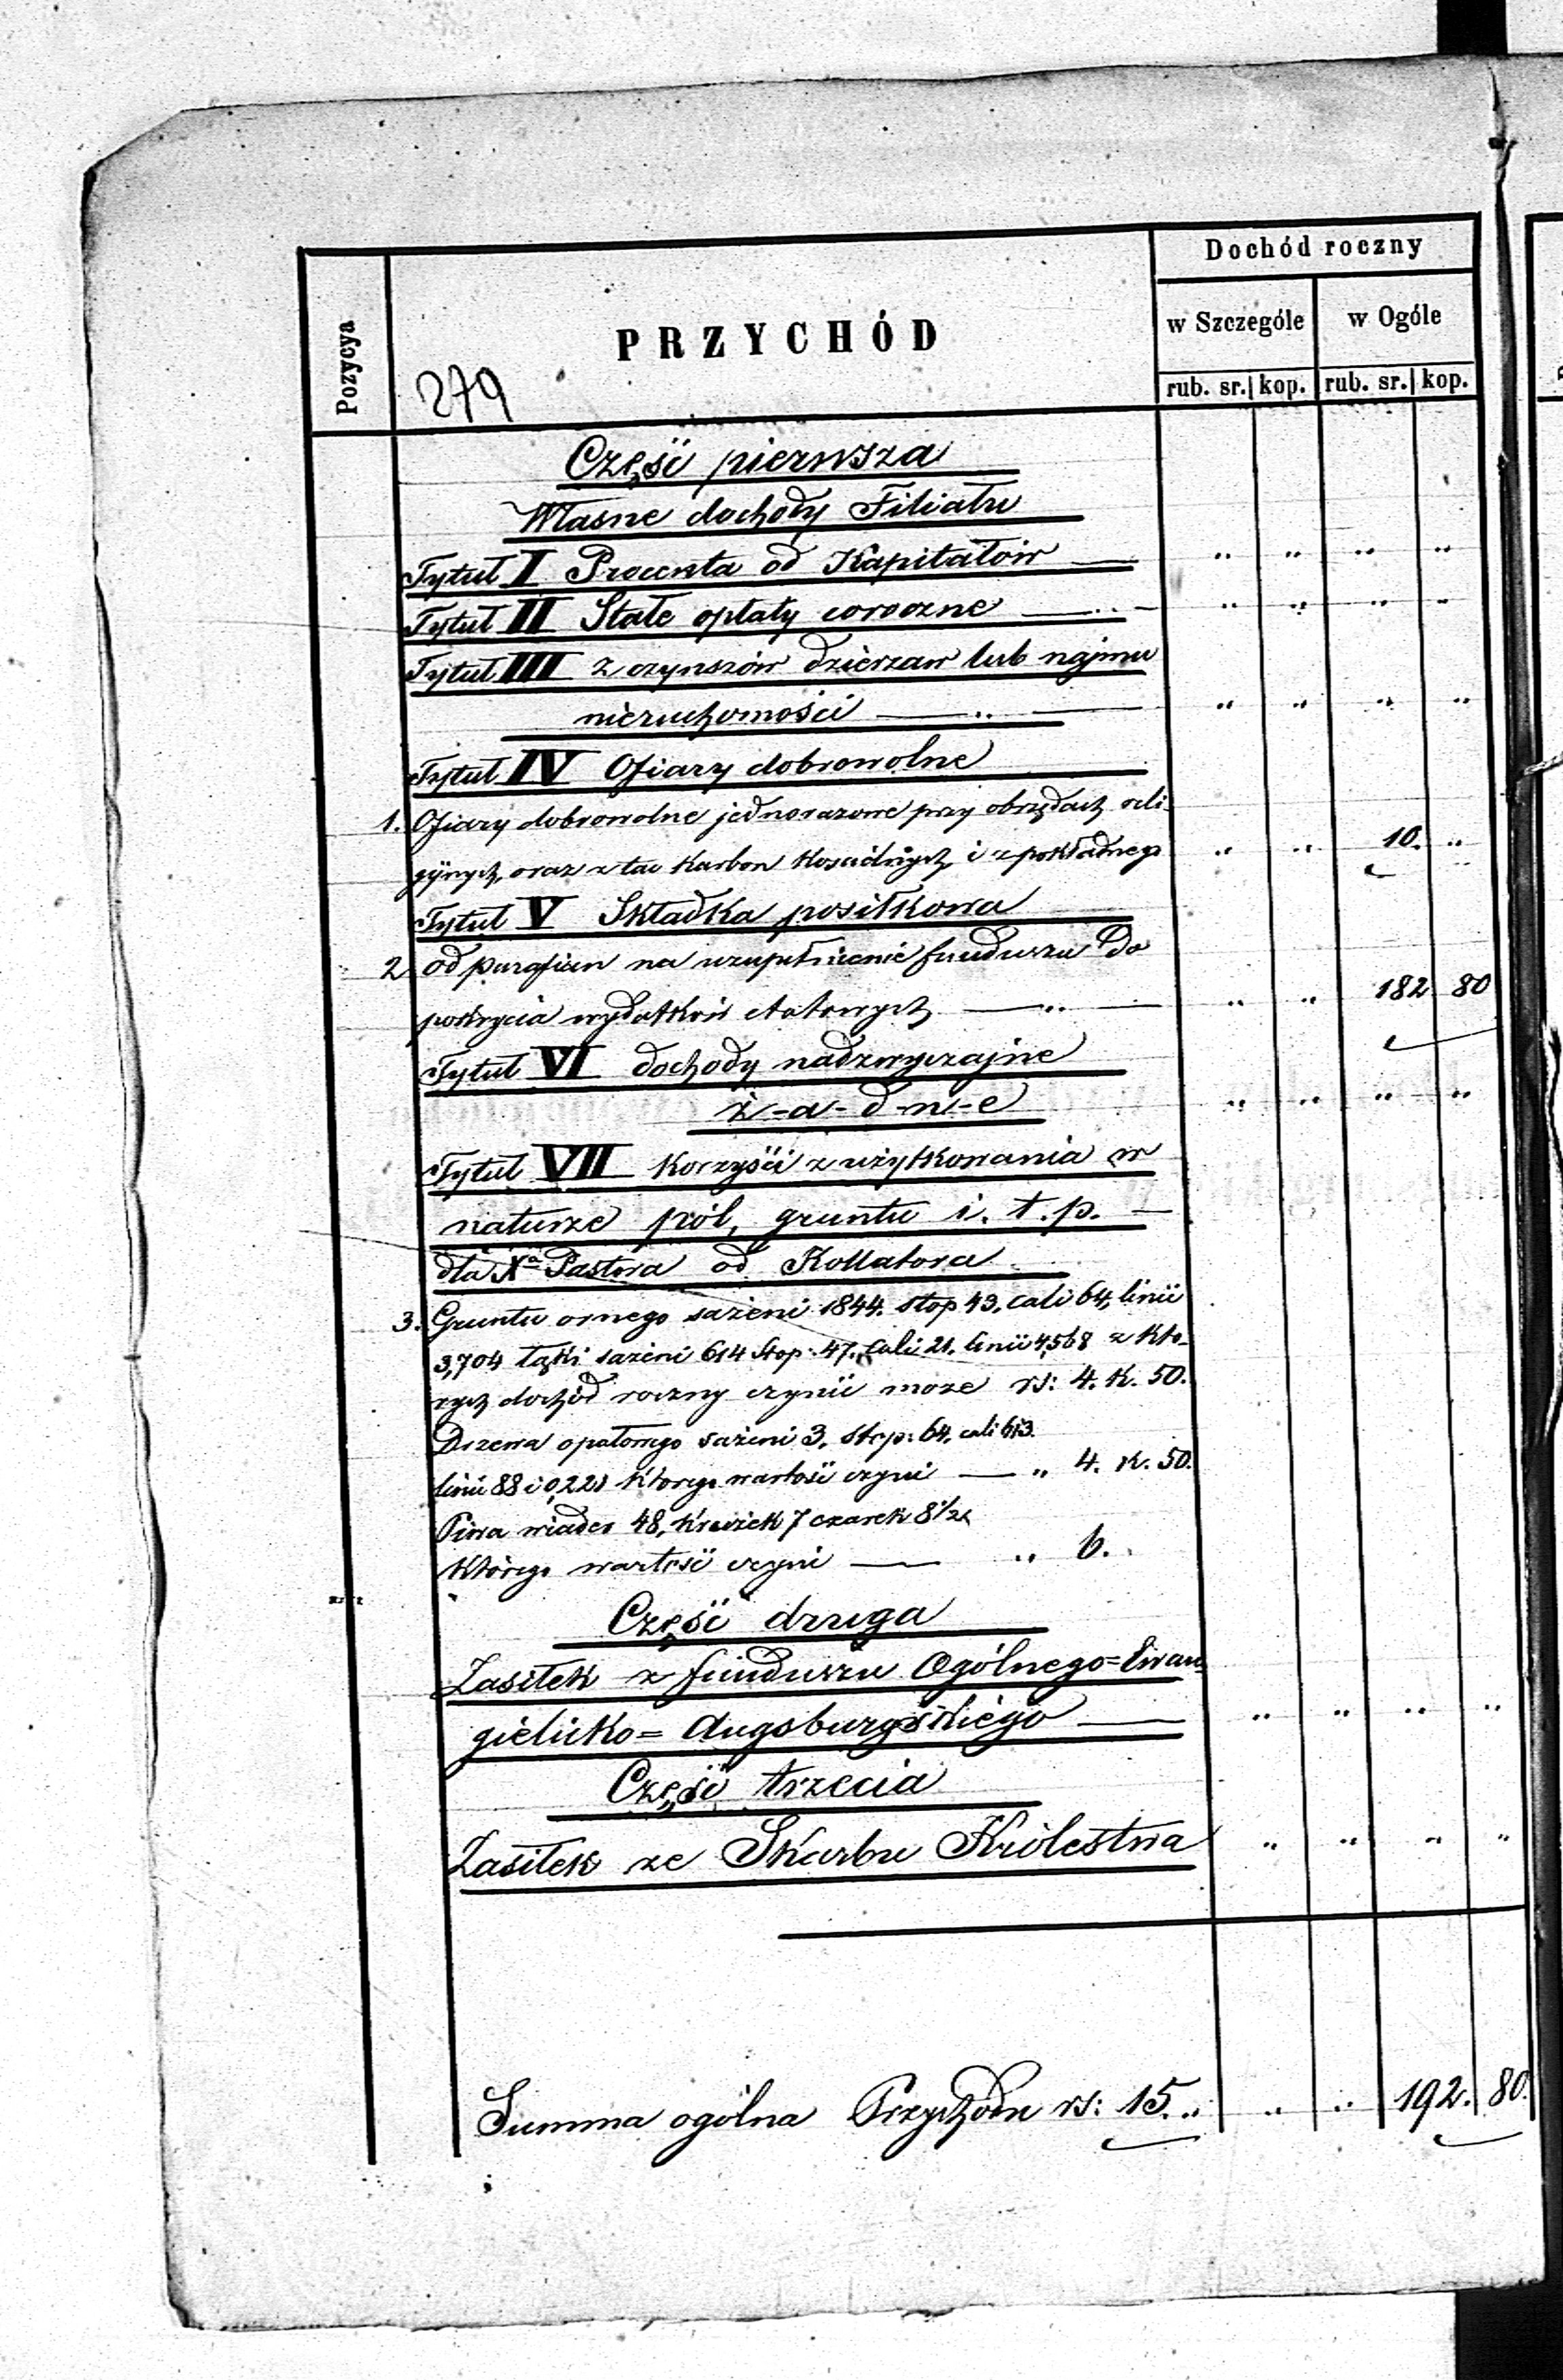 Pozycya
PRZYCHÓD
Dochód roczny
w Szczególe w Ogóle
rub. sr. kop. rub. sr. kop.
279
Część pierwsza
Własne dochody Filiału
Tytuł I Procenta od Kapitałów — " " " "
Tytuł II Stałe opłaty coroczne — " — " " " "
Tytuł III z czynszów dzierzaw lub najmu
nieruchomości — " — " " " "
Tytuł IV Ofiary dobrowolne
1. Ofiary dobrowolne jednorazowe przy obrzędach reli-
gijnych, oraz z tac Karbon Kościelnych i z pokładnego " " 10. "
Tytuł V Składka posiłkowa
2 od parafian na uzupełnienie funduszu do
pokrycia wydatków etatowych — " — " " 182 80
Tytuł VI dochody nadzwyczajne
ż-a-d-n-e " " " "
Tytuł VII Korzyści z użytkowania w
naturze pól, gruntu i. t. p. —
dla Xa Pastora od Kollatora
3. Gruntu ornego sażeni 1844. stop 43. cali 64, linii
3,704 łąki sażeni 614 stop: 47. cali 21. linii 4,568 z któ-
rych dochód roczny czynić może rs: 4. k. 50.
Drzewa opałowego sażeni 3. stop: 64. cali 613.
linii 88 i 0,221 którego wartość czyni — " 4. k. 50.
Piwa wiader 48, krużek 7 czarek 8 1/2
którego wartość czyni — " 6.
Część druga
Zasiłek z funduszu Ogólnego=Ewan
gielicko=Augsburgskiego — " " " "
Część trzecia
Zasiłek ze Skarbu Królestwa " " " "
Summa ogólna Przychodu rs: 15. " " " 192. 80.